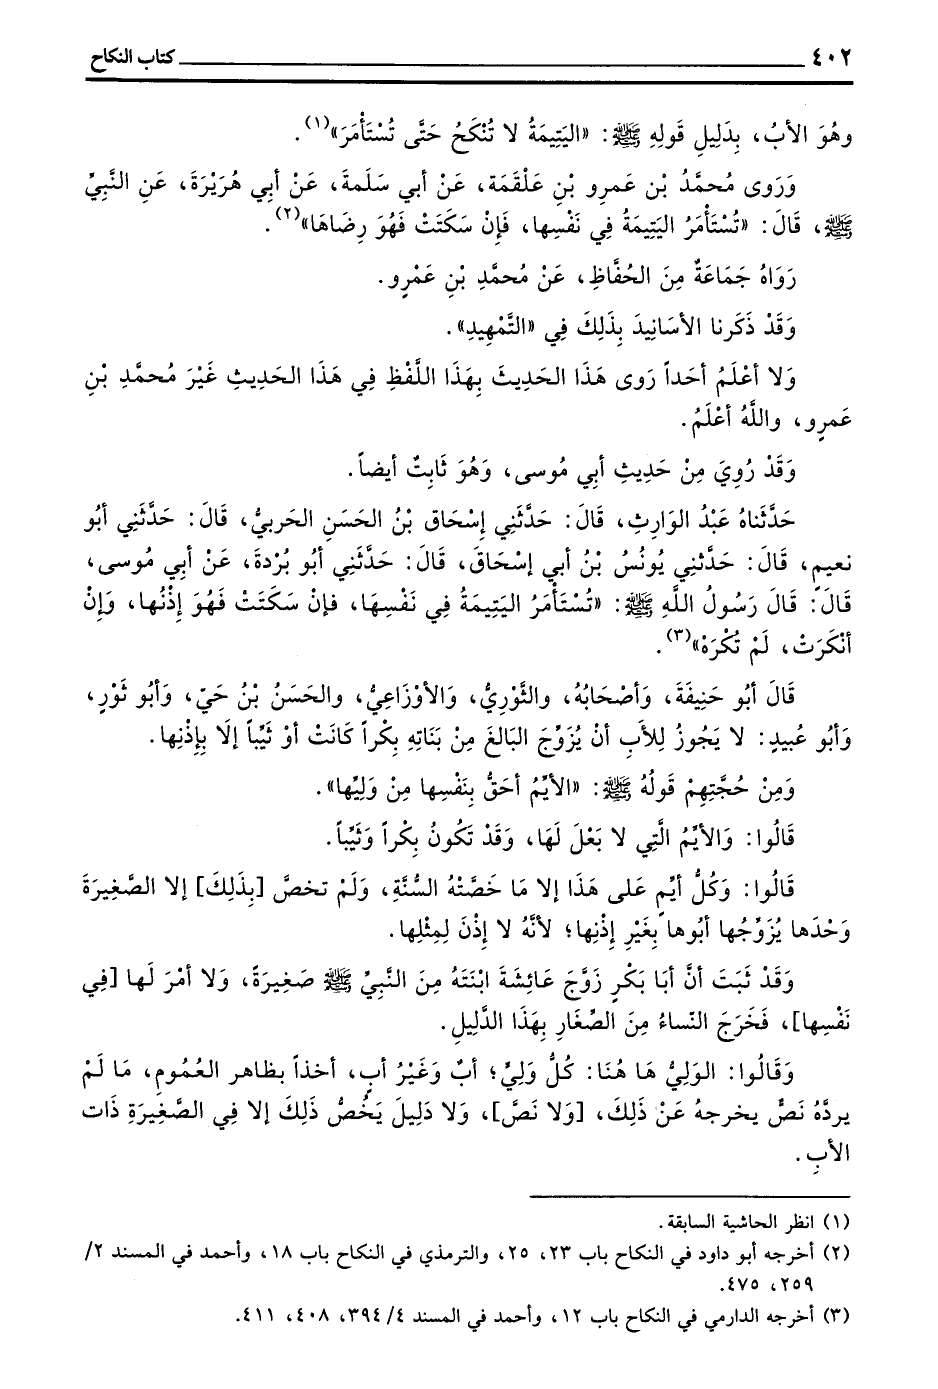 ٤٠٢ كتاب النكاح
وهُوَ الأبُ، بِدَلِيلِ قَولِهِ ﷺ: «اليَتِيمَةُ لا تُنْكَحُ حَتَّى تُسْتَأْمَرَ»(١).
وَرَوى مُحمَّدُ بْن عَمرِو بْنِ عَلْقَمَة، عَنْ أبي سَلَمةَ، عَنْ أبي هُرَيْرَةَ، عَنِ النَّبِيِّ
ﷺ، قَالَ: «تُسْتَأْمَرُ اليَتِيمَةُ فِي نَفْسِها، فَإِنْ سَكَتَتْ فَهُوَ رِضَاهَا»(٢).
رَوَاهُ جَمَاعَةٌ مِنَ الحُفَّاظِ، عَنْ مُحمَّدِ بْنِ عَمْرٍو.
وَقَدْ ذَكَرنا الأسَانِيدَ بِذَلِكَ فِي «التَّمْهِيدِ».
وَلا أعْلَمُ أحَداً رَوى هَذَا الحَدِيثَ بِهَذَا اللَّفْظِ فِي هَذَا الحَدِيثِ غَيْرَ مُحمَّدِ بْنِ
عَمرٍو، واللَّهُ أعْلَمُ.
وَقَدْ رُوِيَ مِنْ حَدِيثِ أبِي مُوسى، وَهُوَ ثَابِتٌ أيضاً.
حَدَّثَناهُ عَبْدُ الوَارِثِ، قَالَ: حَدَّثَنِي إِسْحَاق بْنُ الحَسَنِ الحَربيُّ، قَالَ: حَدَّثَنِي أبُو
نعيمٍ، قَالَ: حَدَّثنِي يُونُسُ بْنُ أبي إِسْحَاقَ، قَالَ: حَدَّثَنِي أبُو بُرْدةَ، عَنْ أبِي مُوسى،
قَالَ: قَالَ رَسُولُ اللَّهِ ﷺ: «تُسْتَأْمَرُ اليَتِيمَةُ فِي نَفْسِهَا، فإنْ سَكَتَتْ فَهُوَ إِذْنُها، وَإِنْ
أنْكَرَتْ، لَمْ تُكْرَهْ»(٣).
قَالَ أبُو حَنِيفَةَ، وَأصْحَابُهُ، والثَّوْرِيُّ، وَالأوْزَاعِيُّ، والحَسَنُ بْنُ حَيّ، وَأبُو ثَوْرٍ،
وَأبُو عُبيدٍ: لا يَجُوزُ لِلأبِ أنْ يُزَوِّجَ البَالغَ مِنْ بَنَاتِهِ بِكْراً كَانَتْ أوْ ثَيِّباً إلَا بِإِذْنِها.
وَمِنْ حُجَّتِهِمْ قَولُهُ ﷺ: «الأيِّمُ أحَقُّ بِنَفْسِها مِنْ وَلِيِّها».
قَالُوا: وَالأيِّمُ الَّتِي لا بَعْلَ لَهَا، وَقَدْ تَكُونُ بِكْراً وَثَيِّباً.
قَالُوا: وَكُلُّ أيِّمٍ عَلى هَذَا إلا مَا خَصَّتْهُ السُّنَّةِ، وَلَمْ تخصَّ [بِذَلِكَ] إلا الصَّغِيرَةَ
وَحْدَها يُزَوِّجُها أبُوها بِغَيْرِ إِذْنِها؛ لأنَّهُ لا إِذْنَ لِمِثْلِها.
وَقَدْ ثَبَتَ أنَّ أبَا بَكْرٍ زَوَّجَ عَائِشَةَ ابْنَتَهُ مِنَ النَّبِيِّ ﷺ صَغِيرَةً، وَلا أمْرَ لَها [فِي
نَفْسِها]، فَخَرَجَ النّساءُ مِنَ الصِّغَارِ بِهَذَا الدَّلِيلِ.
وَقَالُوا: الوَلِيُّ هَا هُنَا: كُلُّ وَلِيٍّ؛ أبٌ وَغَيْرُ أبٍ، أخذاً بظاهر العُمُومِ، مَا لَمْ
يردَّهُ نَصٌّ يخرجهُ عَنْ ذَلِكَ، [وَلا نَصَّ]، وَلا دَلِيلَ يَخُصُّ ذَلِكَ إلا فِي الصَّغِيرَةِ ذَات
الأبِ.
(١) انظر الحاشية السابقة.
(٢) أخرجه أبو داود في النكاح باب ٢٣، ٢٥، والترمذي في النكاح باب ١٨، وأحمد في المسند ٢/
٢٥٩، ٤٧٥.
(٣) أخرجه الدارمي في النكاح باب ١٢، وأحمد في المسند ٤/ ٣٩٤، ٤٠٨، ٤١١.